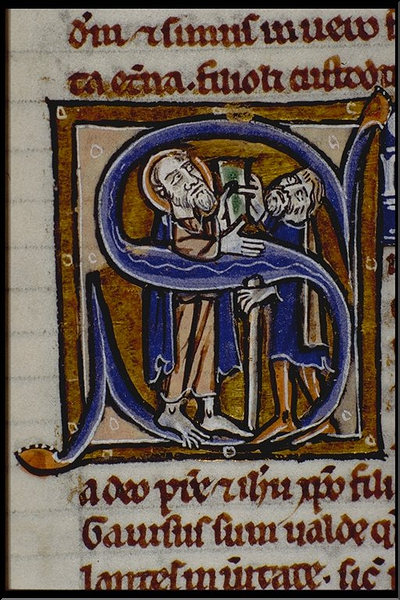 dm̄ ⁊ simus in uero
ta et̄na. filioli custodi
S
a deo pr̄e ⁊ ih̄u xp̄o fili
Gauisus sum ualde q
lantes in ūitate. sic